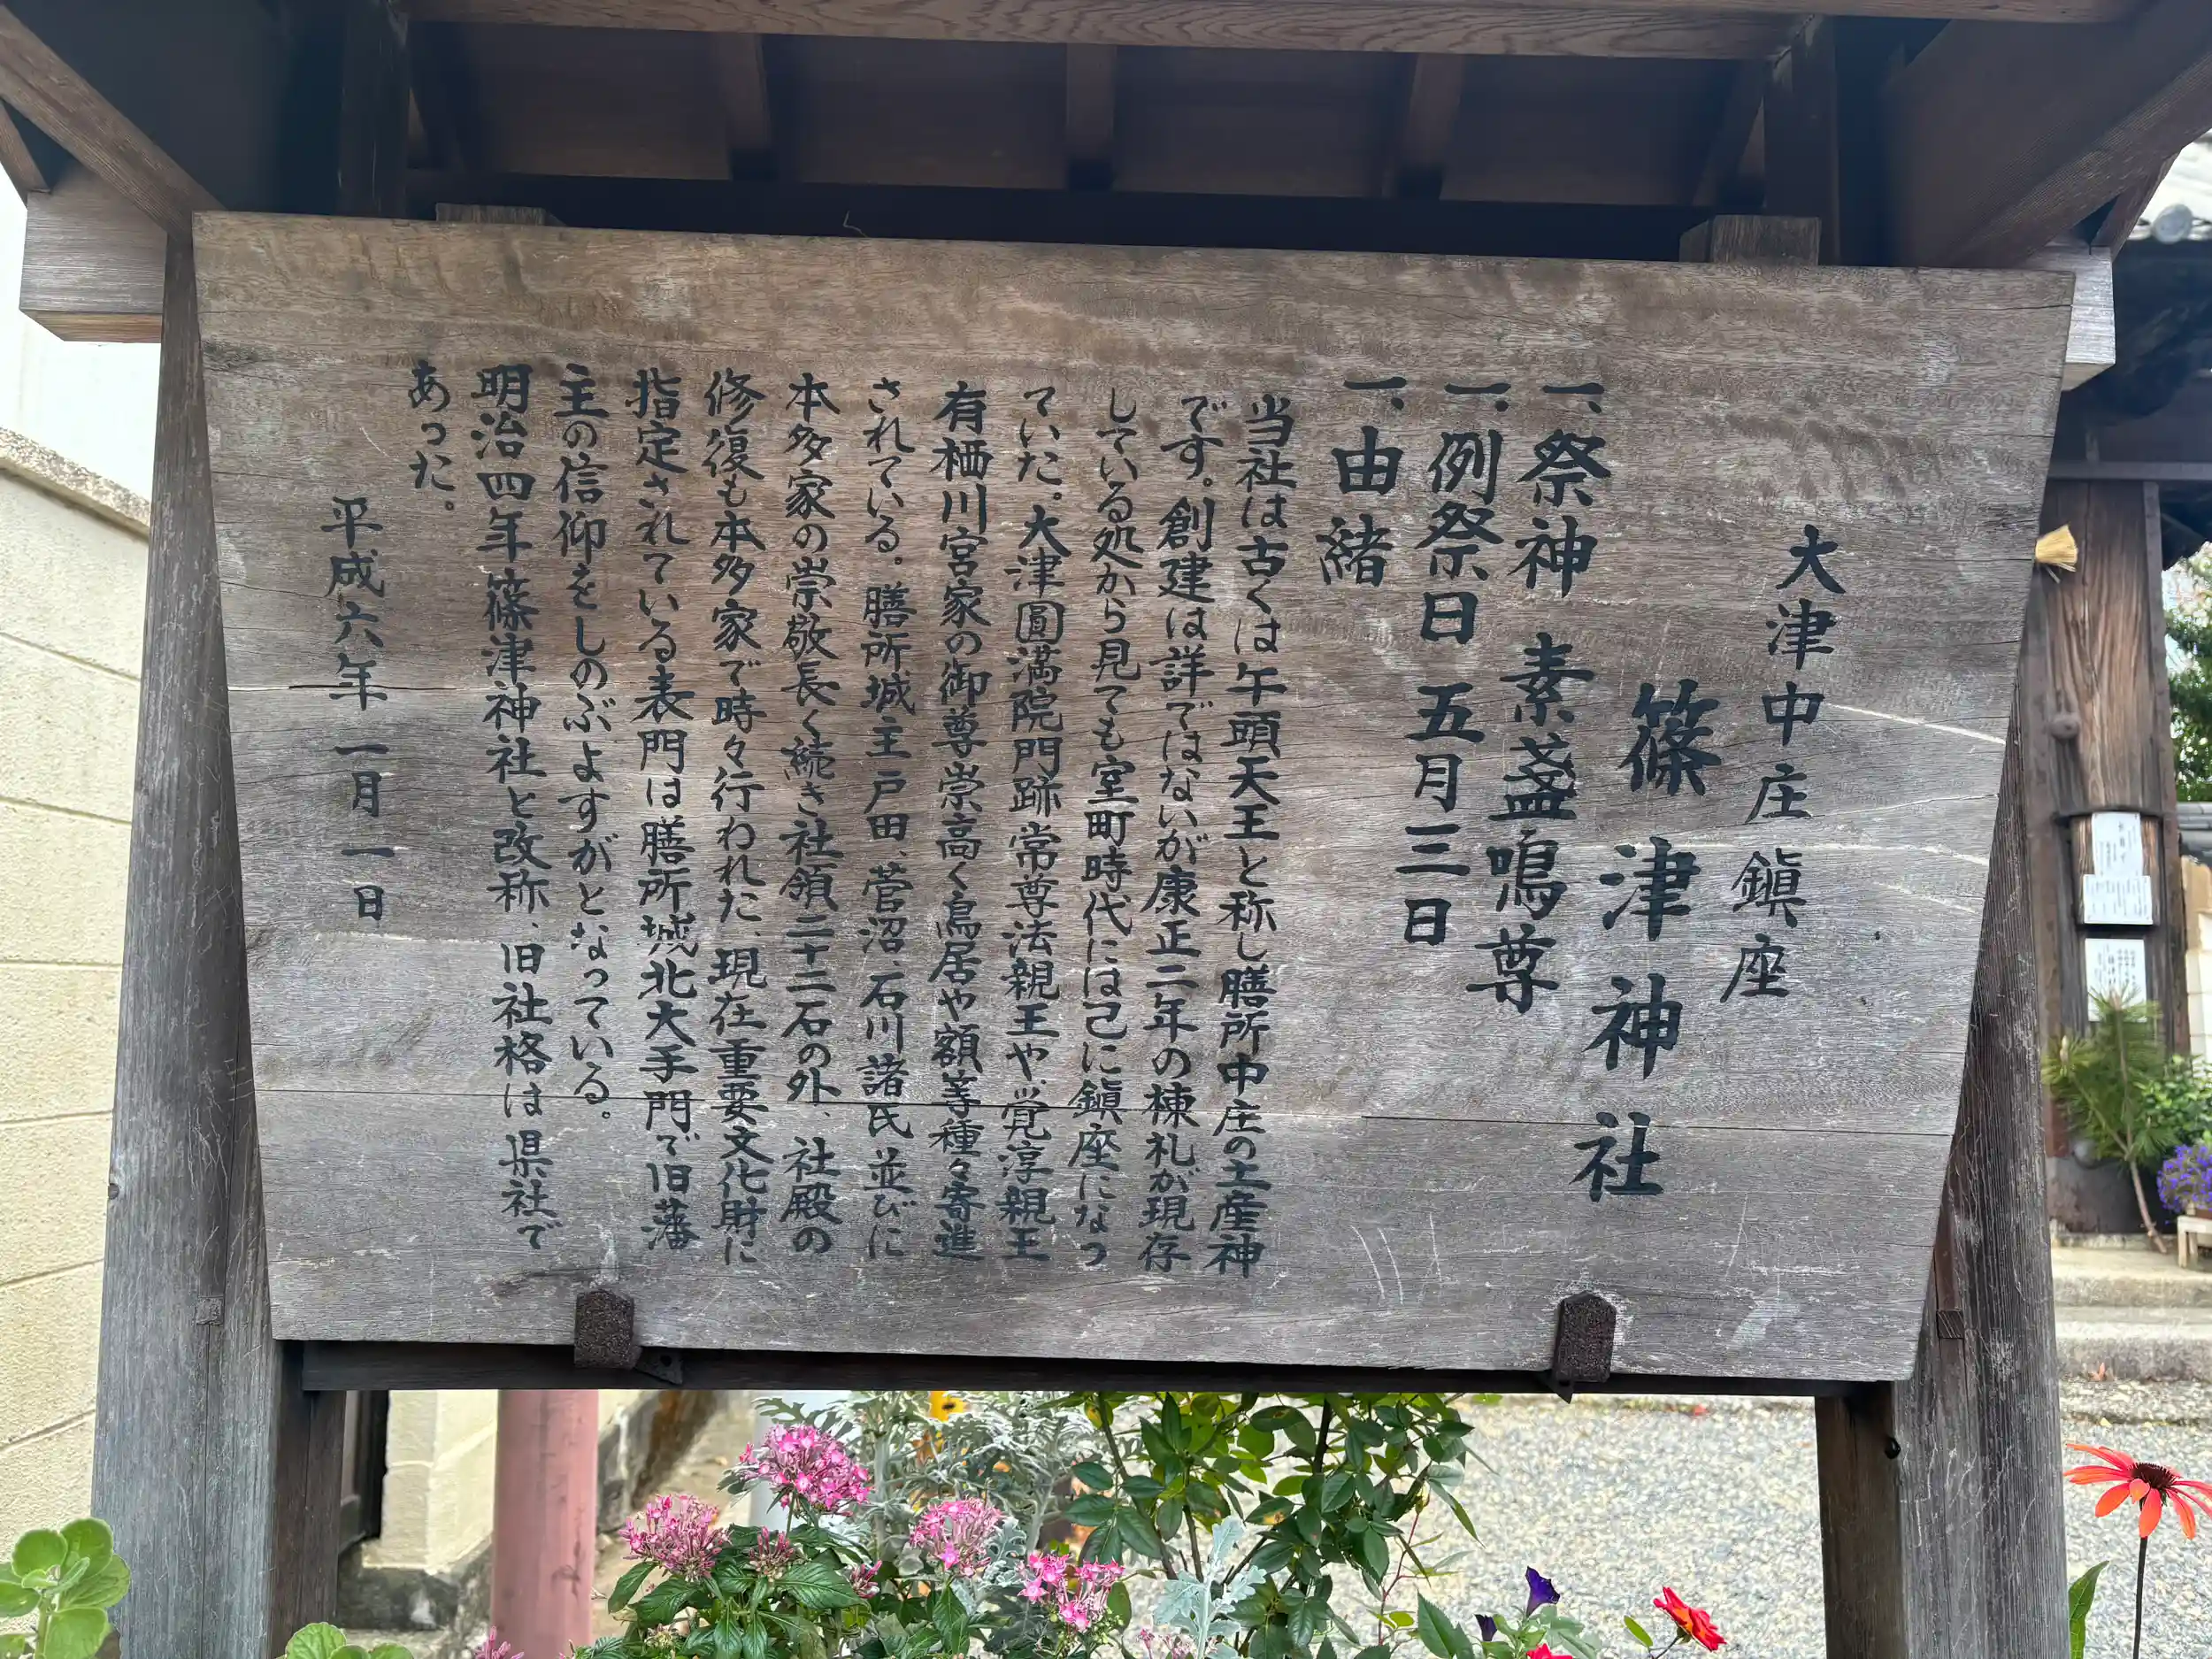 大津中庄鎮座
篠津神社
一、祭神　素盞嗚尊
一、例祭日　五月三日
一、由緒
当社は古くは午頭天王と称し膳所中庄の土産神
です。創建は詳ではないが康正二年の棟札が現存
している処から見ても室町時代には己に鎮座になっ
ていた。大津圓満院門跡常尊法親王や、覚淳親王
有栖川宮家の御尊崇高く鳥居や額等種々寄進
されている。膳所城主戸田、菅沼、石川諸氏並びに
本多家の崇敬長く続き社領三十二石の外、社殿の
修復も本多家で時々行われた、現在重要文化財に
指定されている表門は膳所城北大手門で旧藩
主の信仰をしのぶよすがとなっている。
明治四年篠津神社と改称、旧社格は県社で
あった。
平成六年一月一日